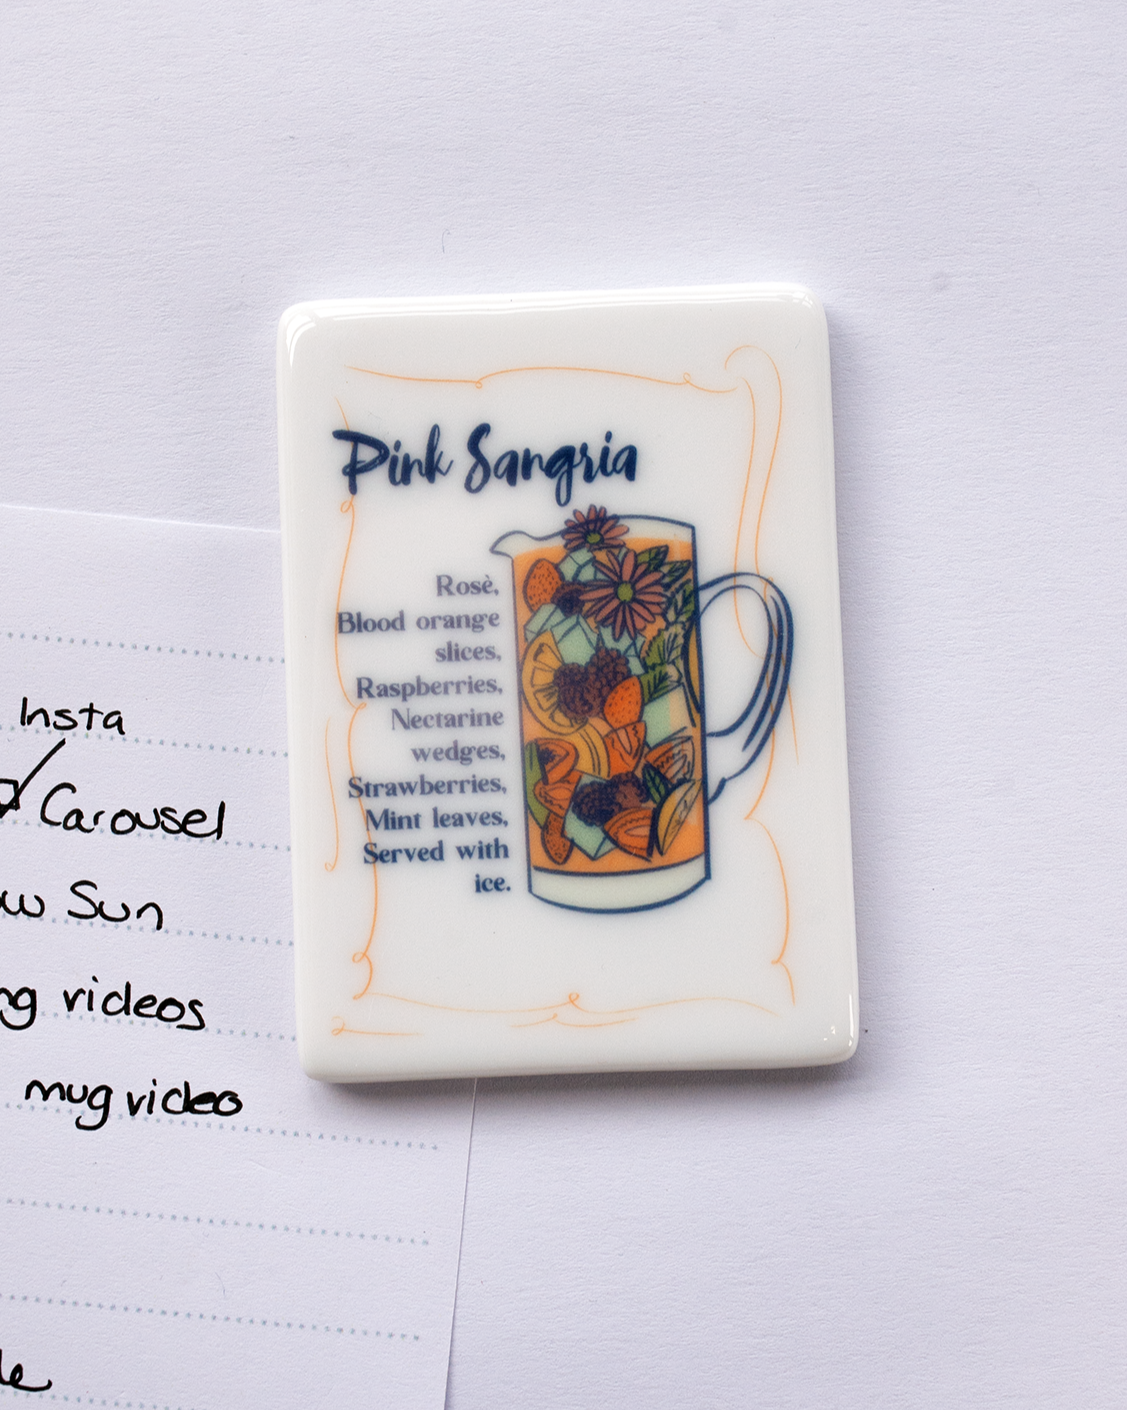 Pink Sangria
Rosè,
Blood orange
slices,
Raspberries,
Nectarine
wedges,
Strawberries,
Mint leaves,
Served with
ice.
Insta
Carousel
Sun
videos
mug video